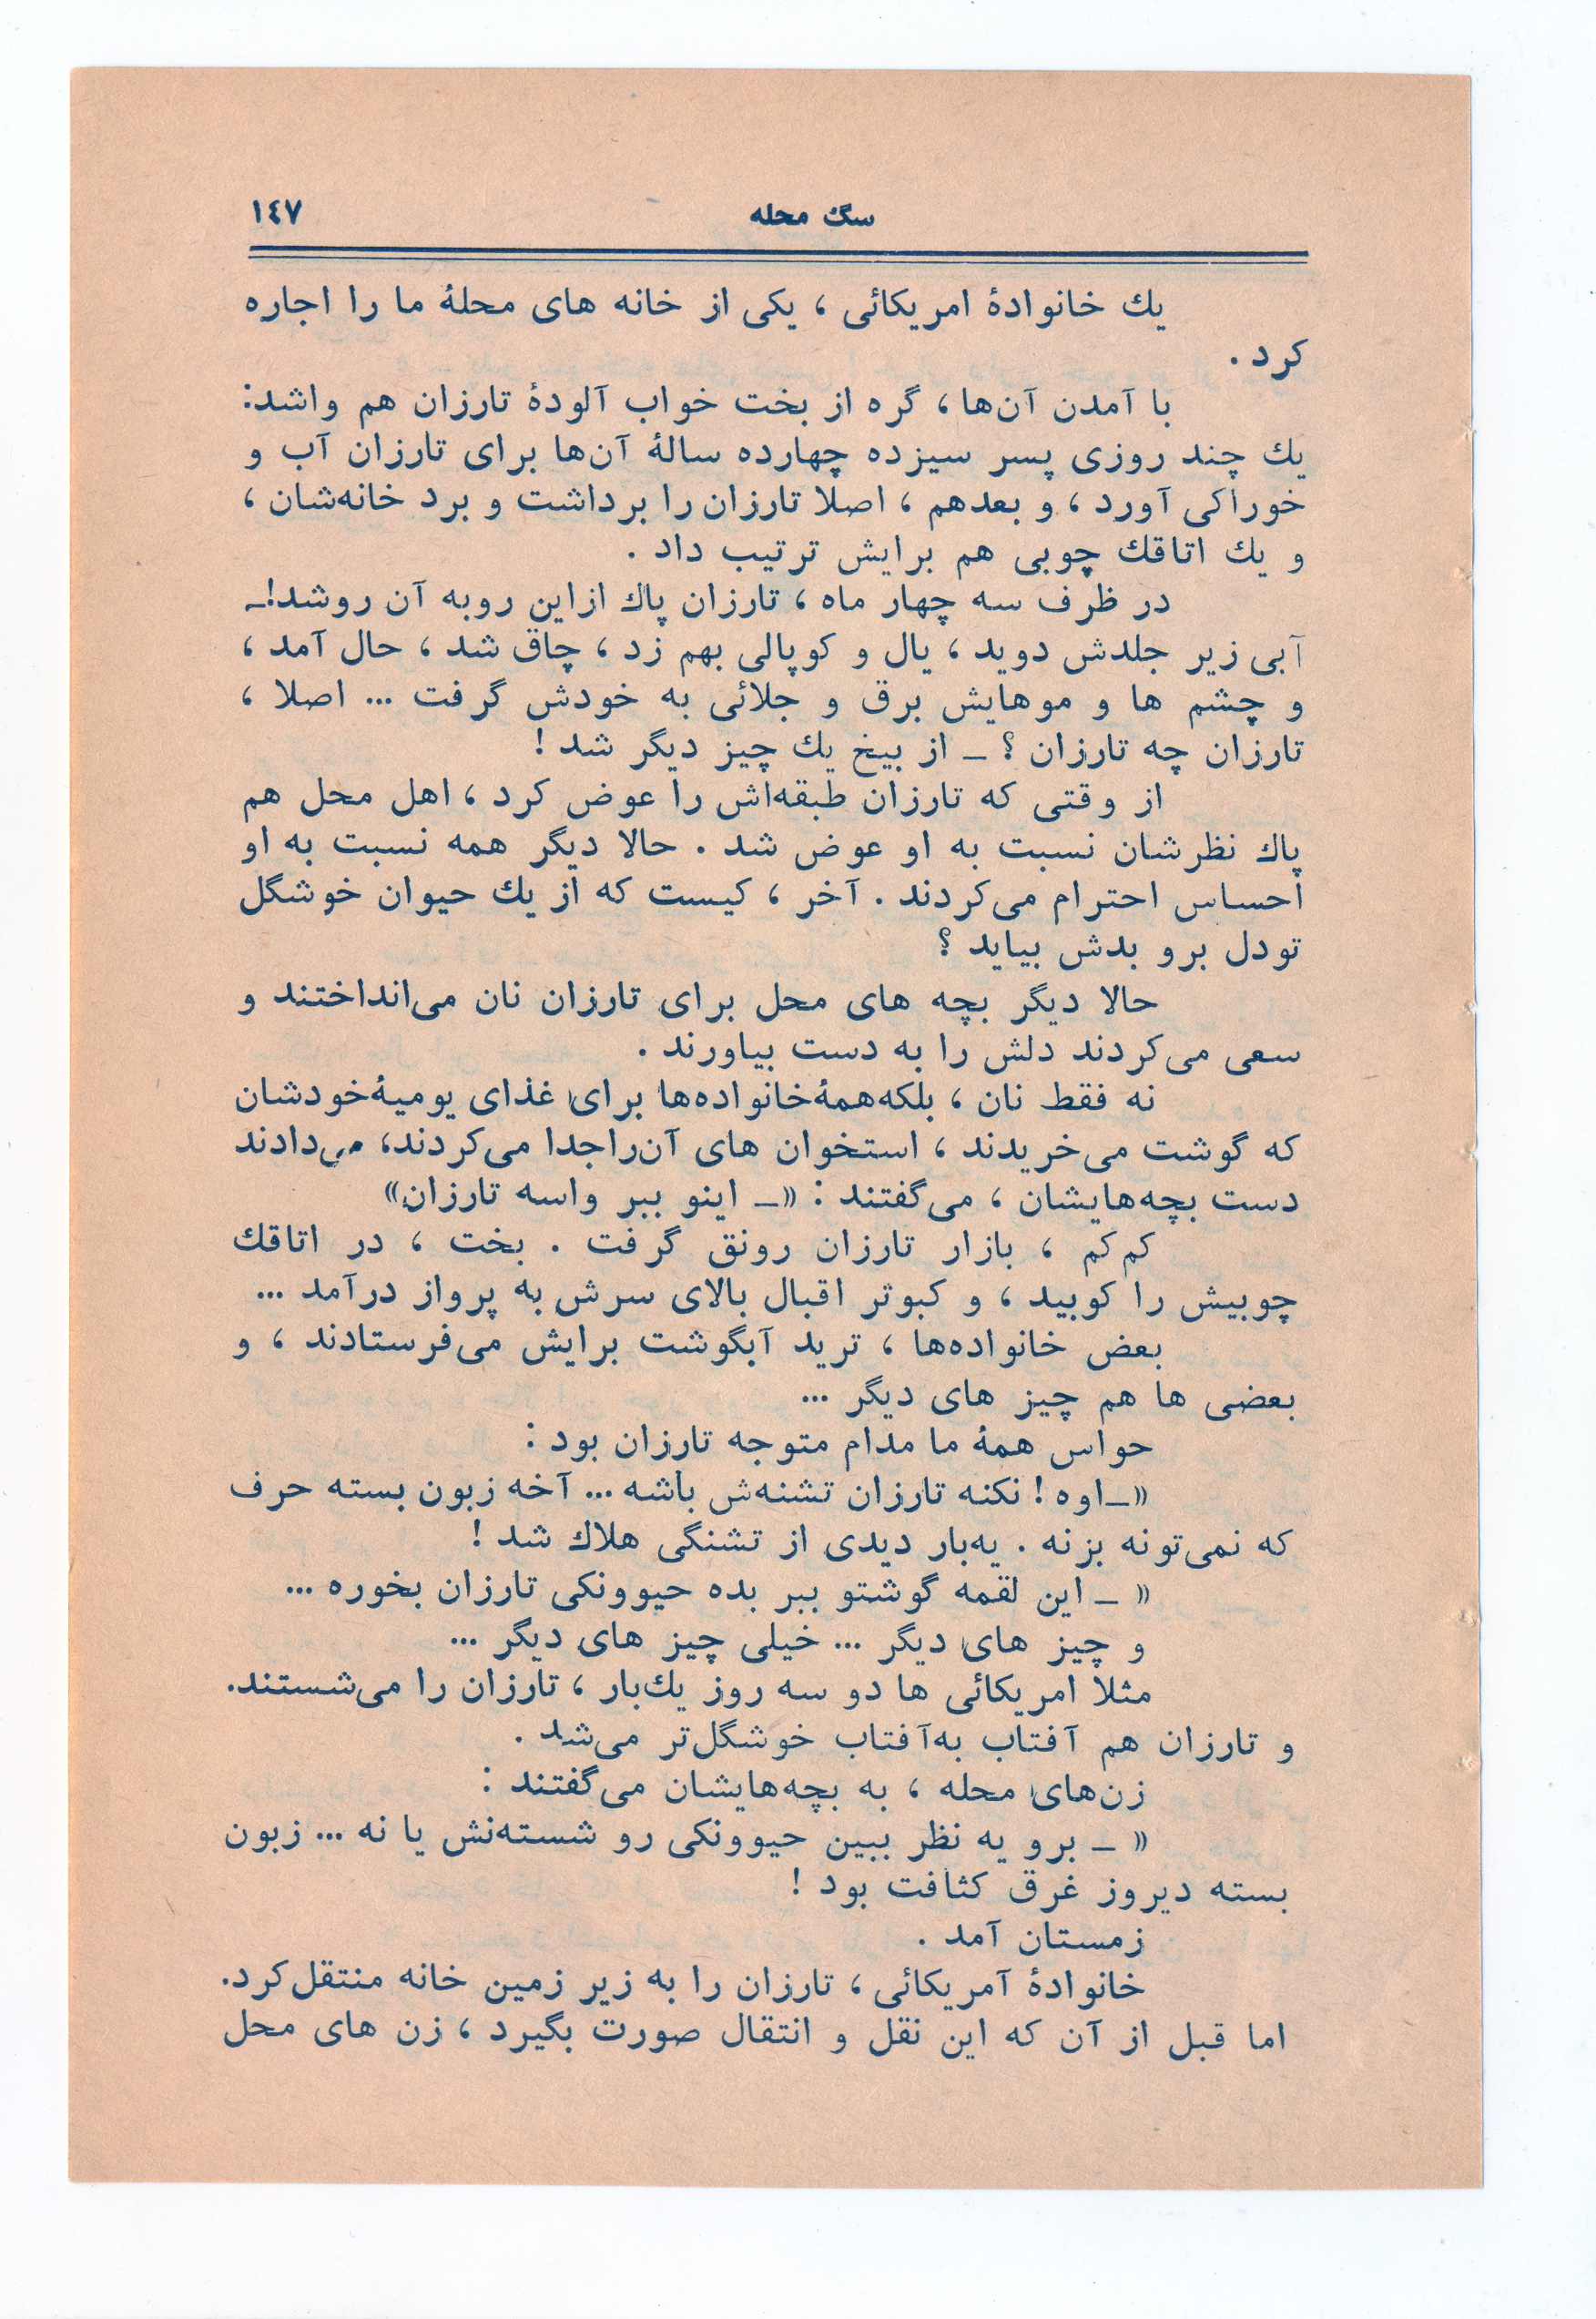 سگ محله ١٤٧
یك خانوادهٔ امریکائی ، یکی از خانه های محلهٔ ما را اجاره
کرد .
با آمدن آن‌ها ، گره از بخت خواب آلودهٔ تارزان هم واشد:
یك چند روزی پسر سیزده چهارده سالهٔ آن‌ها برای تارزان آب و
خوراکی آورد ، و بعدهم ، اصلا تارزان را برداشت و برد خانه‌شان ،
و یك اتاقك چوبی هم برایش ترتیب داد .
در ظرف سه چهار ماه ، تارزان پاك ازاین روبه آن روشد!ـ
آبی زیر جلدش دوید ، یال و کوپالی بهم زد ، چاق شد ، حال آمد ،
و چشم ها و موهایش برق و جلائی به خودش گرفت ... اصلا ،
تارزان چه تارزان ؟ ـ از بیخ یك چیز دیگر شد !
از وقتی که تارزان طبقه‌اش را عوض کرد ، اهل محل هم
پاك نظرشان نسبت به او عوض شد . حالا دیگر همه نسبت به او
احساس احترام می‌کردند . آخر ، کیست که از یك حیوان خوشگل
تودل برو بدش بیاید ؟
حالا دیگر بچه های محل برای تارزان نان می‌انداختند و
سعی می‌کردند دلش را به دست بیاورند .
نه فقط نان ، بلکه‌همهٔ‌خانواده‌ها برای غذای یومیهٔ‌خودشان
که گوشت می‌خریدند ، استخوان های آن‌راجدا می‌کردند، می‌دادند
دست بچه‌هایشان ، می‌گفتند : «ـ اینو ببر واسه تارزان»
کم‌کم ، بازار تارزان رونق گرفت . بخت ، در اتاقك
چوبیش را کوبید ، و کبوتر اقبال بالای سرش به پرواز درآمد ...
بعض خانواده‌ها ، ترید آبگوشت برایش می‌فرستادند ، و
بعضی ها هم چیز های دیگر ...
حواس همهٔ ما مدام متوجه تارزان بود :
«ـ‌اوه ! نکنه تارزان تشنه‌ش باشه ... آخه زبون بسته حرف
که نمی‌تونه بزنه . یه‌بار دیدی از تشنگی هلاك شد !
« ـ این لقمه گوشتو ببر بده حیوونکی تارزان بخوره ...
و چیز های دیگر ... خیلی چیز های دیگر ...
مثلا امریکائی ها دو سه روز یك‌بار ، تارزان را می‌شستند.
و تارزان هم آفتاب به‌آفتاب خوشگل‌تر می‌شد .
زن‌های محله ، به بچه‌هایشان می‌گفتند :
« ـ برو یه نظر ببین حیوونکی رو شسته‌نش یا نه ... زبون
بسته دیروز غرق کثافت بود !
زمستان آمد .
خانوادهٔ آمریکائی ، تارزان را به زیر زمین خانه منتقل‌کرد.
اما قبل از آن که این نقل و انتقال صورت بگیرد ، زن های محل